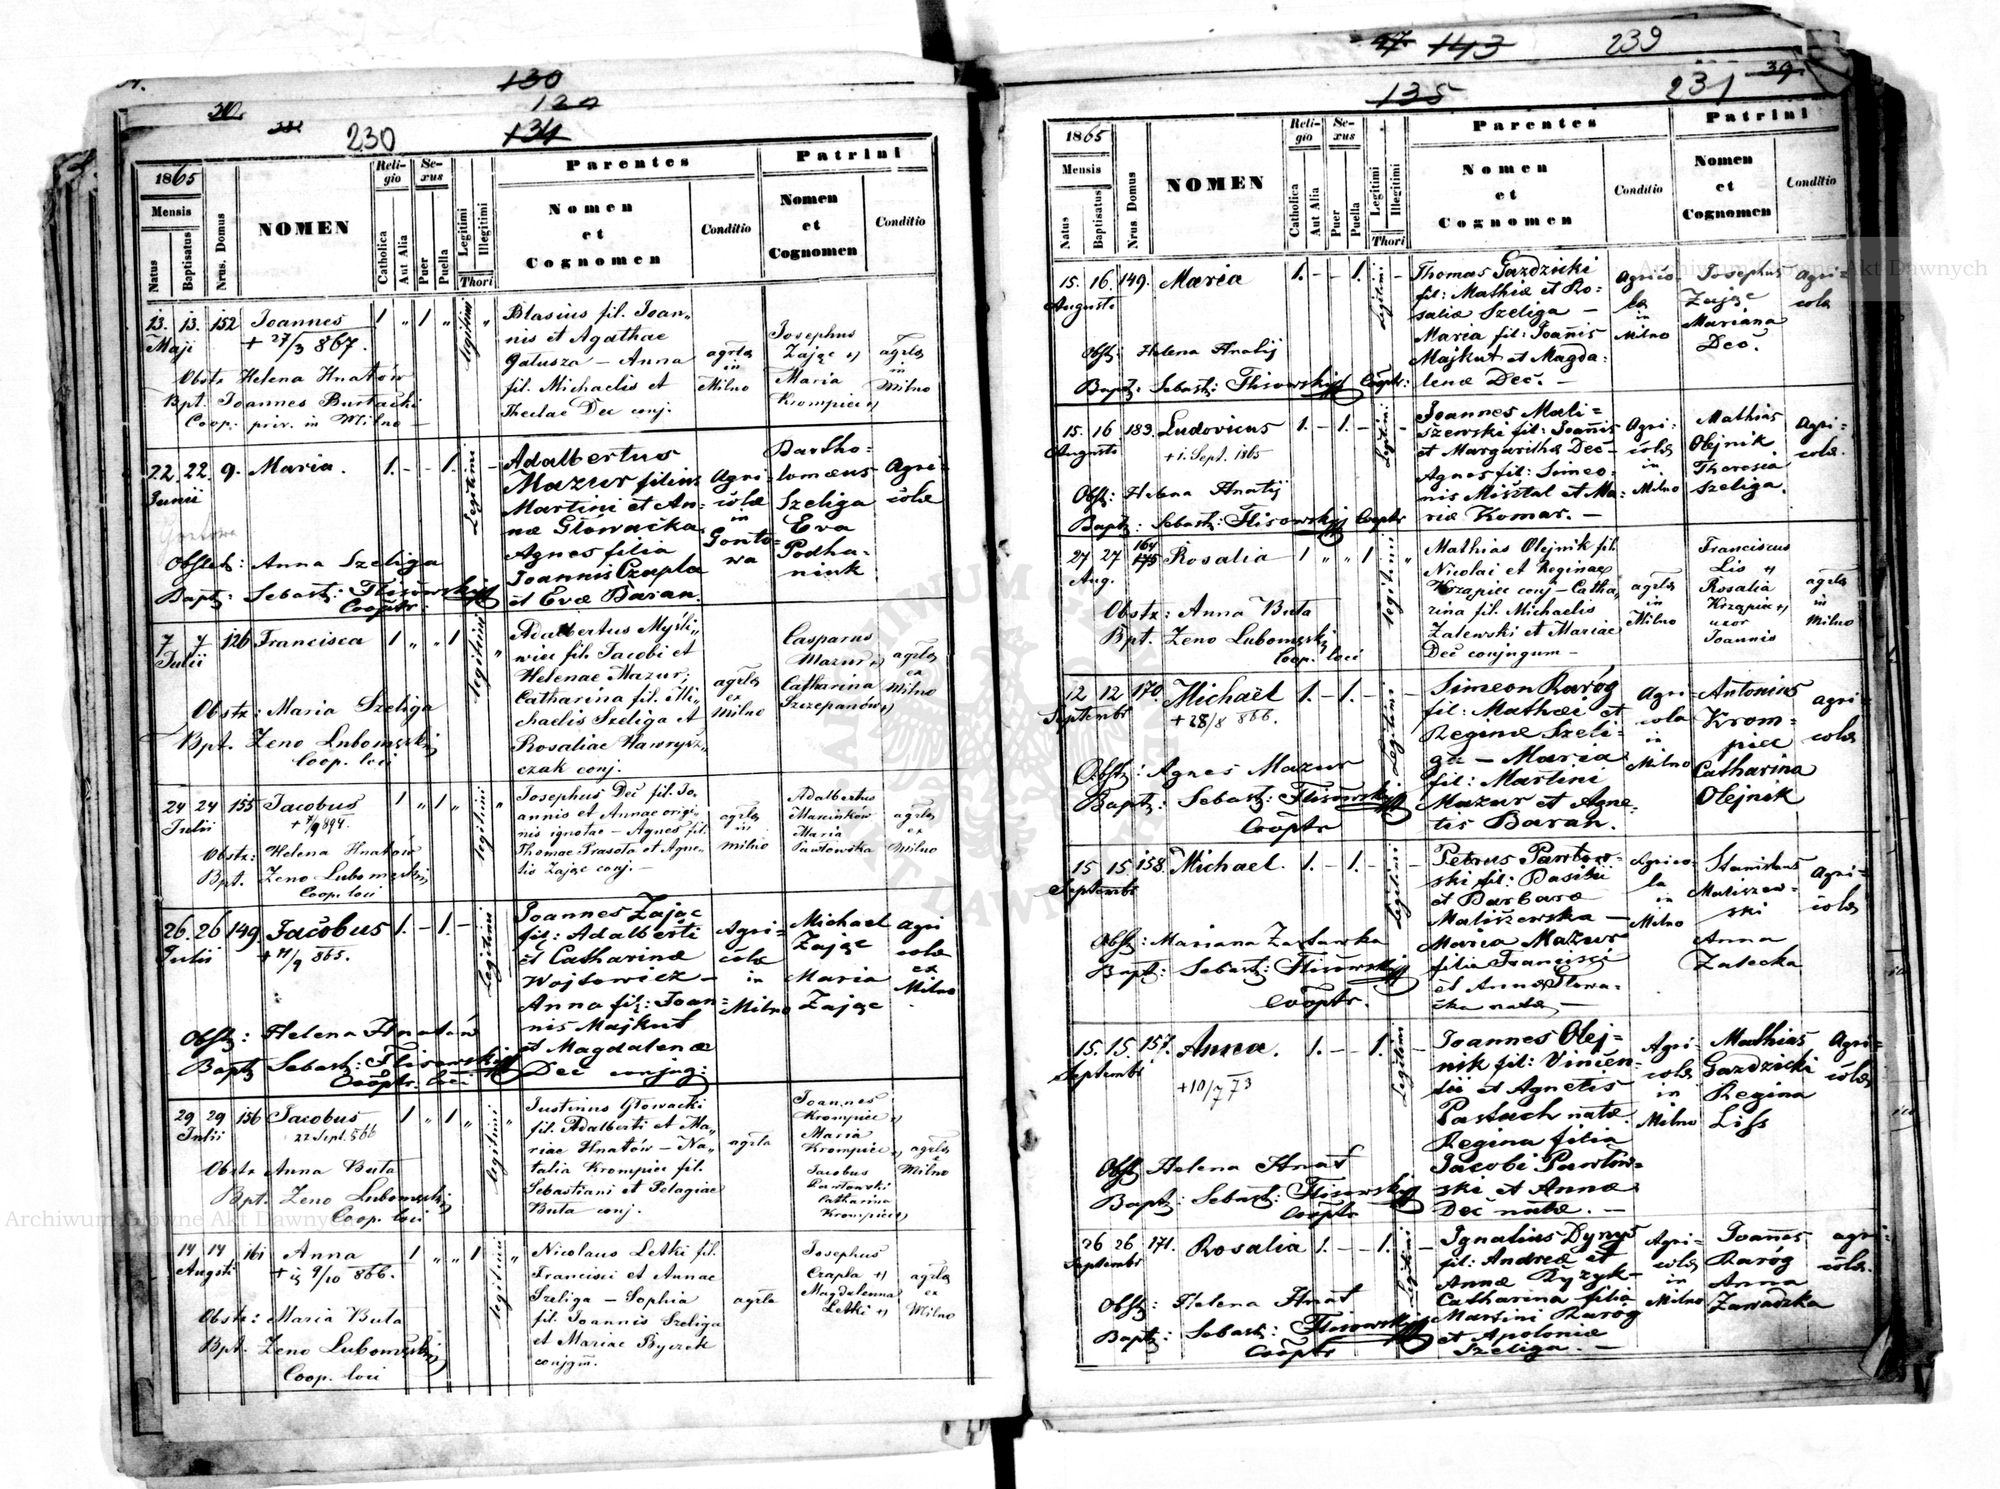 130
120
134
230
1865
Mensis
Natus
Baptisatus
Nrus. Domus
NOMEN
Religio
Catholica
Aut Alia
Sexus
Puer
Puella
Legitimi
Illegitimi
Thori
Parentes
Nomen
et
Cognomen
Conditio
Patrini
Nomen
et
Cognomen
Conditio
13. 13. 152 Joannes 1 " 1 " legitimi "
Maji + 27/3 867.
Obstr Helena Hnatów
Bpt. Joannes Burtacki
Coop. priv. in Milno
Blasius fil. Joan-
nis et Agathae
Galusza - Anna
fil. Michaelis et
Theclae Dec conj.
agrla
in
Milno
Josephus
Zając
Maria
Krompiec
agrla
in
Milno
22. 22. 9. Maria. 1. - - 1. Legitimi -
Junii
Gontowa
Obstet: Anna Szeliga
Bapt: Sebast: Flisowski
Cooptr:
Adalbertus
Mazur filius
Martini et An-
næ Głowačka.
Agnes filia
Joannis Czapla
et Evæ Baran.
Agri-
čola
in
Gonto-
wa
Bartho-
lomæus
Szeliga
Eva
Podha-
niuk
Agri-
čolæ
7 7 126 Francisca 1 " " 1 legitimi "
Julii
Obstr: Maria Szeliga
Bpt. Zeno Lubomęski
Coop. loci
Adalbertus Myśli-
wiec fil. Jacobi et
Helenae Mazur,
Catharina fil. Mi-
chaelis Szeliga et
Rosaliae Hawrysz-
czak conj.
agrla
ex
Milno
Casparus
Mazur
Catharina
Szczepanów
agrla
ex
Milno
24 24 155 Jacobus 1 " 1 " legitimi "
Julii + 7/9 894.
Obstr: Helena Hnatów
Bpt. Zeno Lubomęski
Coop. loci
Josephus Dec fil. Jo-
annis et Annae origi-
nis ignotae - Agnes fil.
Thomae Prasota et Agne-
tis Zając conj. -
agrla
in
Milno
Adalbertus
Marcinków
Maria
Pawłowska
agrla
ex
Milno
26. 26 149. Jacobus 1. - 1. - Legitimi
Julii + 11/9 865.
Obst: Helena Hnatów
Bapt Sebast: Flisowski
Cooptr. loci
Joannes Zając
fil: Adalberti
et Catharinæ
Wojtowicz -
Anna fil: Joan-
nis Majkut
et Magdalenæ
Dec conjug:
Agri-
čola
in
Milno
Michael
Zając
Maria
Zając
Agri
colæ
ex
Milno
29 29 156 Jacobus 1 " 1 " legitimi "
Julii 22 Sept. 866
Obstr Anna Buta
Bpt. Zeno Lubomęski
Coop. loci
Justinus Głowacki
fil. Adalberti et Ma-
riae Hnatów - Na-
talia Krompiec fil.
Sebastiani et Pelagiae
Buta conj.
agrla
Joannes
Krompiec
Maria
Krompiec
Jacobus
Pawłowski
Catharina
Krompiec
agrla
Milno
14 14 161 Anna 1 " " 1 legitimi "
Augsti 9/10 866.
Obstr: Maria Buta
Bpt. Zeno Lubomęski
Coop. loci
Nicolaus Letki fil.
Francisci et Annae
Szeliga - Sophia
fil. Joannis Szeliga
et Mariae Byczek
conjgm.
agrla
Josephus
Czapla
Magdalenna
Letki
agrla
ex
Milno
143
239
135
231
39.
1865
Mensis
Natus
Baptisatus
Nrus Domus
NOMEN
Religio
Catholica
Aut Alia
Sexus
Puer
Puella
Legitimi
Illegitimi
Thori
Parentes
Nomen
et
Cognomen
Conditio
Patrini
Nomen
et
Cognomen
Conditio
15. 16. 149. Maria 1. - - 1. Legitimi
Augusti
Obst: Helena Hnatÿ
Bapt: Sebast: Flisowski Cooptr:
Thomas Gazdzicki
fil: Mathiæ et Ro-
saliæ Szeliga -
Maria fil: Joanis
Majkut et Magda-
lenæ Deč. -
Agrico-
la
in
Milno
Josephus
Zając
Mariana
Deč.
Agri-
colæ
15. 16 183. Ludovicus 1. - 1. - Legitimi -
Augusti + 1. Sept. 1865
Obst: Helena Hnatÿ
Bapt: Sebast: Flisowski Cooptr
Joannes Mali-
szewski fil: Joanis
et Margarithæ Deč -
Agnes fil: Simeo-
nis Misztal et Ma-
riæ Komar. -
Agri-
čola
in
Milno
Mathias
Olejnik
Theresia
Szeliga.
Agri-
colæ
27 27 164 175 Rosalia 1 " " 1 legitimi "
Aug.
Obstr: Anna Buta
Bpt. Zeno Lubomęski
Coop. loci
Mathias Olejnik fil.
Nicolai et Reginae
Krząpiec conj - Catha-
rina fil. Michaelis
Zalewski et Mariae
Deč conjugum -
agrla
in
Milno
Franciscus
Lis
Rosalia
Krząpiec
uxor
Joannis
agrla
in
Milno
12 12 170. Michaël 1. - 1. - Legitimi -
Septembr + 28/8 866.
Obst: Agnes Mazur
Bapt: Sebast: Flisowski
Cooptr
Simeon Karóg
fil: Mathæi et
Reginæ Szeli-
ga - Maria
fil: Martini
Mazur et Agne-
tis Baran.
Agri-
cola
in
Milno
Antonius
Krom-
piec
Catharina
Olejnik
agri-
colæ
15 15 158. Michael. 1. - 1. - Legitimi -
Septembr
Obst: Mariana Zasławka
Bapt: Sebast: Flisowski
Cooptr.
Petrus Pawłow-
ski fil: Basilii
et Barbaræ
Maliszewska -
Maria Mazur
filia Francisci
et Annæ Głowa-
čka natæ -
Agrico-
la
in
Milno
Stanislaus
Maliszew-
ski
Anna
Zalecka
Agri-
colæ
15. 15. 157. Anna. 1. - - 1. Legitimi -
Septembr + 10/7 73
Obst Helena Hnat
Bapt: Sebast: Flisowski
Cooptr
Joannes Olej-
nik fil: Vincen-
tii et Agnetis
Pastuch natæ.
Regina filia
Jacobi Pawłow-
ski et Annæ
Deč natæ. -
Agri-
colæ
in
Milno
Mathias
Gazdzicki
Regina
Liss
Agri-
colæ
26 26. 171. Rosalia 1. - - 1. Legitimi -
Septembr
Obst: Helena Hnat
Bapt: Sebast: Flisowski
Cooptr
Ignatius Dynys
fil: Andreæ et
Annæ Ryzyk -
Catharina filia
Martini Karóg
et Apoloniæ
Szeliga. -
Agri-
colæ
in
Milno
Joannes
Karóg
Anna
Zawadzka
agri-
colæ.
Archiwum Główne Akt Dawnych